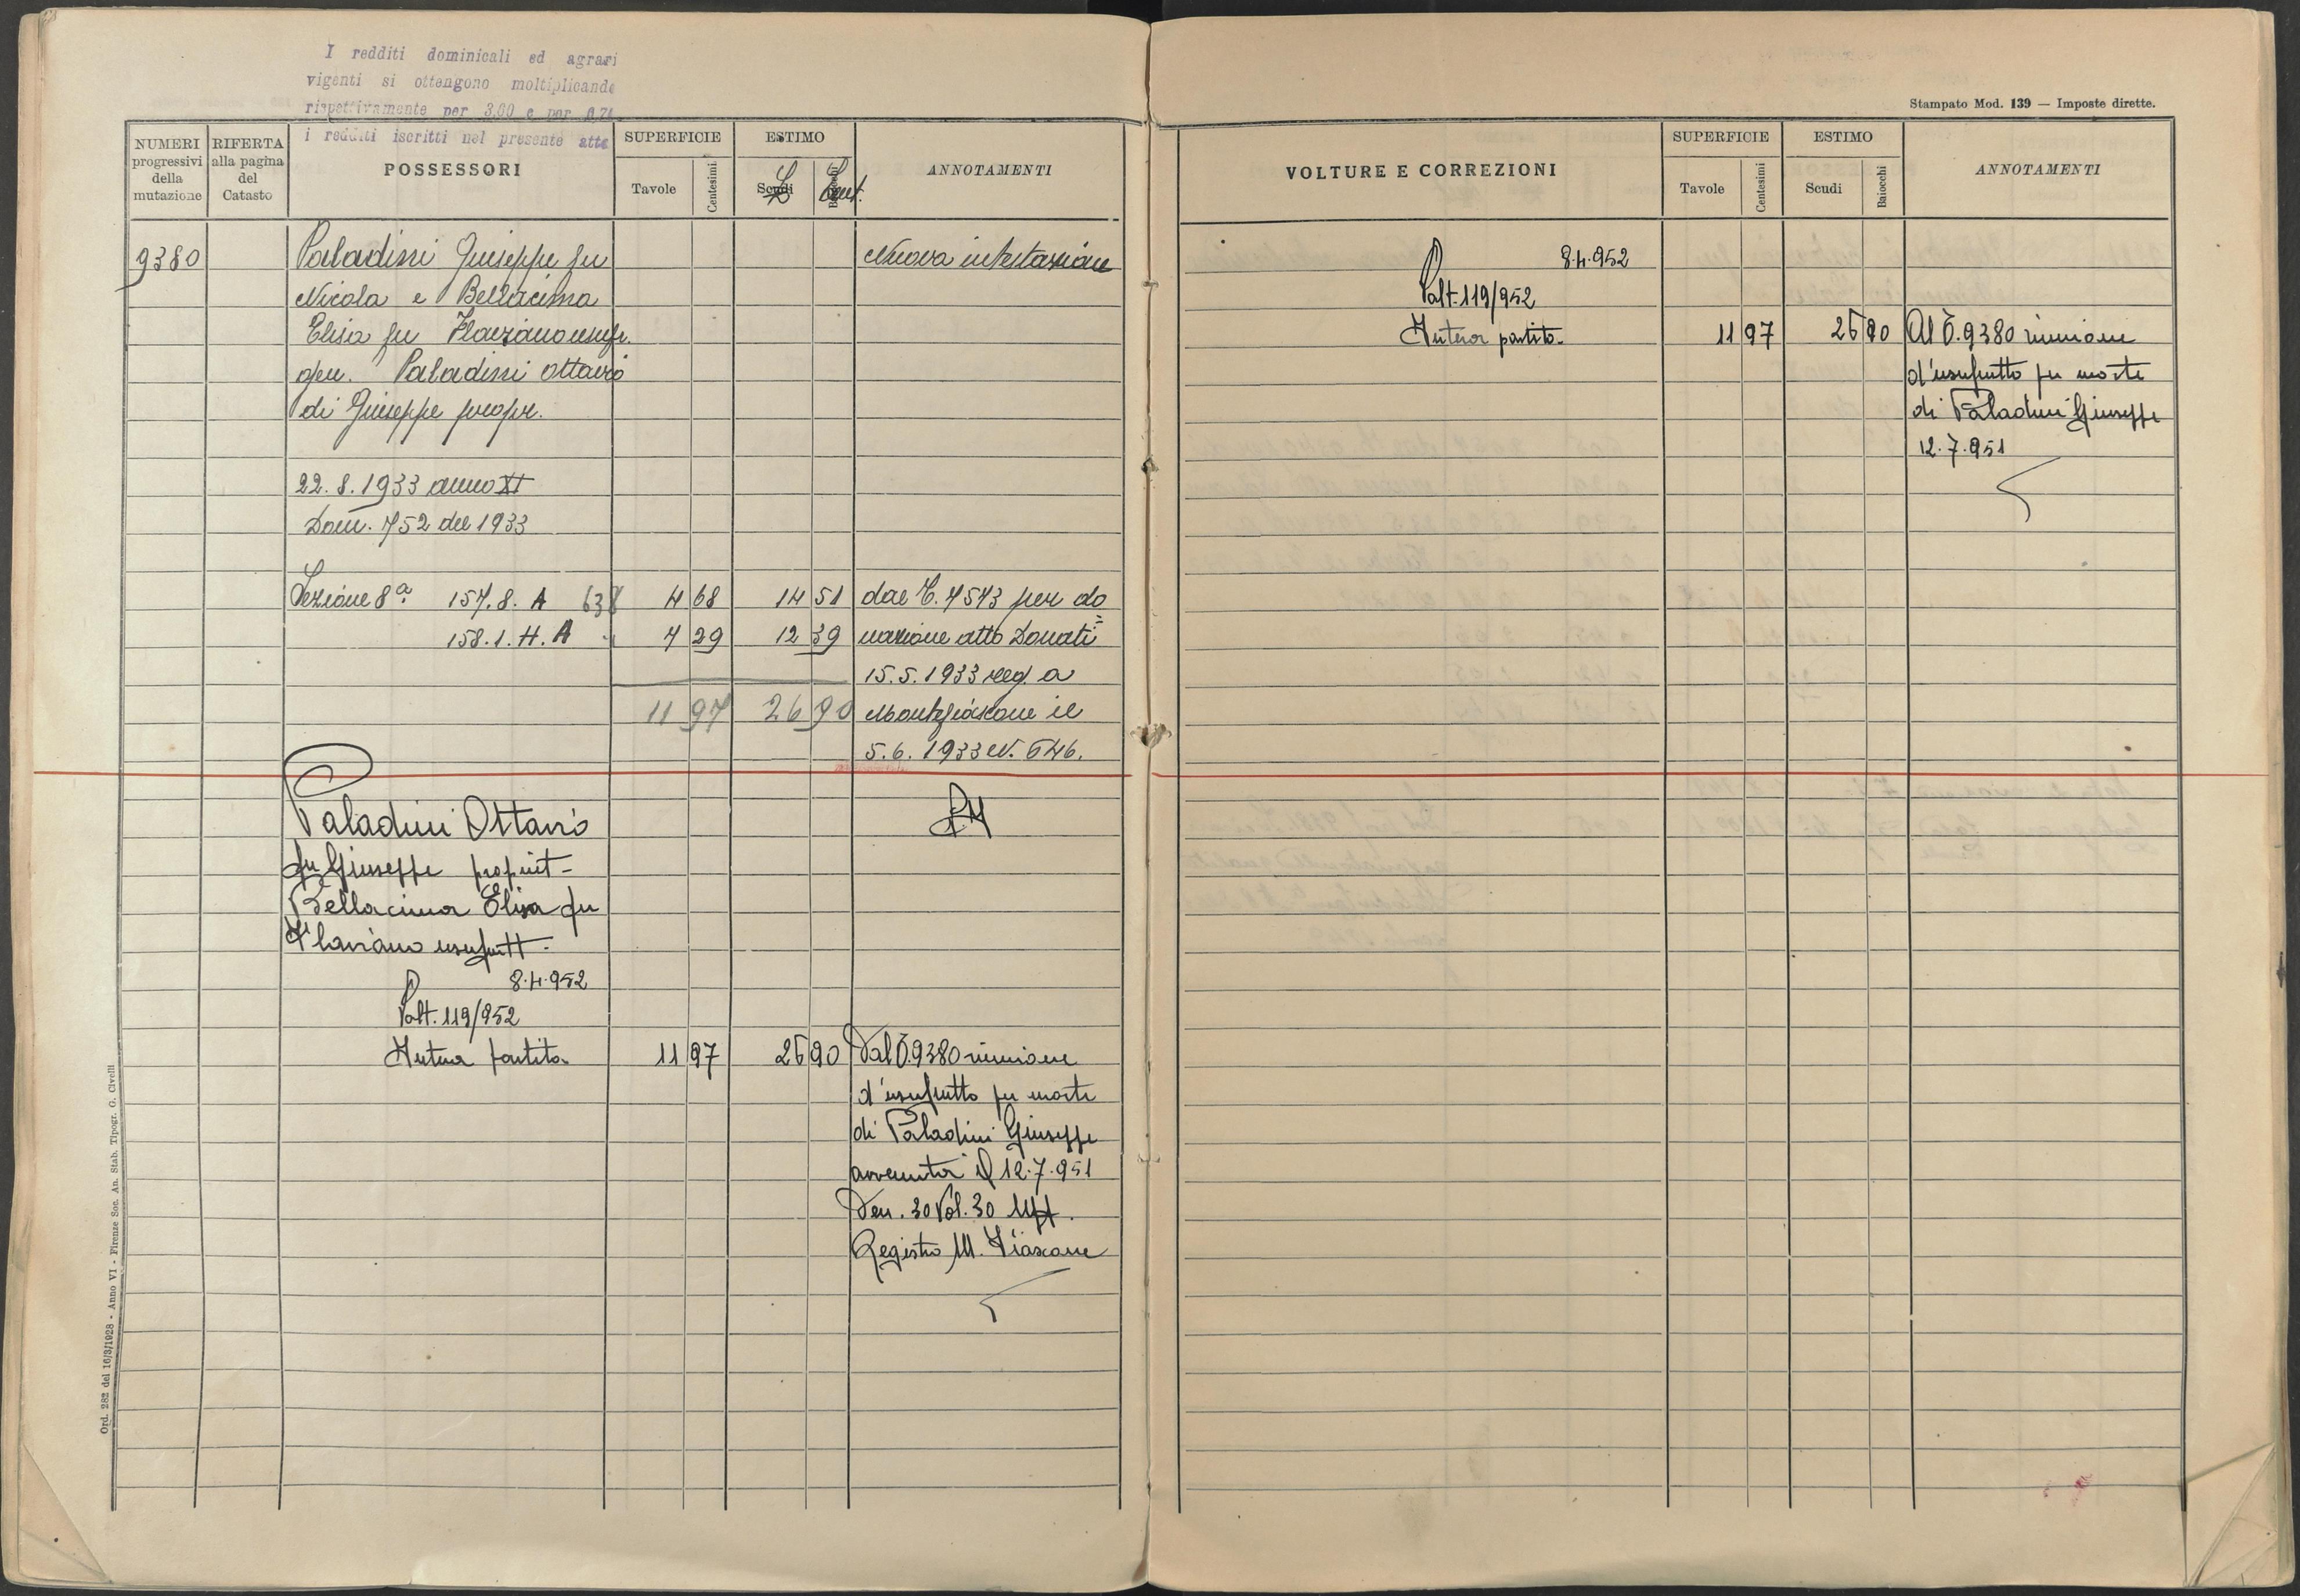 I redditi dominicali ed agrari
vigenti si ottengono moltiplicando
rispettivamente per 3,00 e per
i redditi iscritti nel presente atto
NUMERI progressivi della mutazione
RIFERTA alla pagina del Catasto
POSSESSORI
SUPERFICIE
Tavole Centesimi
ESTIMO
Scudi Baiocchi
L Cent.
ANNOTAMENTI
9380 Paladini Giuseppe fu Nuova intestazione
Nicola e Bellacima
Elisa fu Flaviano usufr.
gen. Paladini Ottavio
di Giuseppe propr.
22.8.1933 anno XI
Dom. 752 del 1933
Sezione 8ª 157.8. A 638 4 68 14 51 dal C. 7543 per do
158.1. H. A " 7 29 12 39 nazione atto Donati
15.5.1933 reg. a
11 97 26 90 Montefiascone il
5.6.1933 N. 646.
Paladini Ottavio
fu Giuseppe propriet-
Bellacima Elisa fu
Flaviano usufrutt-
8.4.952
Volt. 119/952
Intera partita 11 97 26 90 Dal C. 9380 riunione
d'usufrutto per morte
di Paladini Giuseppe
avvenuta il 12.7.951
Den. 30 Vol. 30 Uff.
Registro M. Fiascone
Ord. 282 del 16/3/1928 - Anno VI - Firenze Soc. An. Stab. Tipogr. G. Civelli
Stampato Mod. 139 — Imposte dirette.
VOLTURE E CORREZIONI
SUPERFICIE
Tavole Centesimi
ESTIMO
Scudi Baiocchi
ANNOTAMENTI
8.4.952
Volt. 119/952
Intera partita 11 97 26 90 Al C. 9380 riunione
d'usufrutto per morte
di Paladini Giuseppe
12.7.951